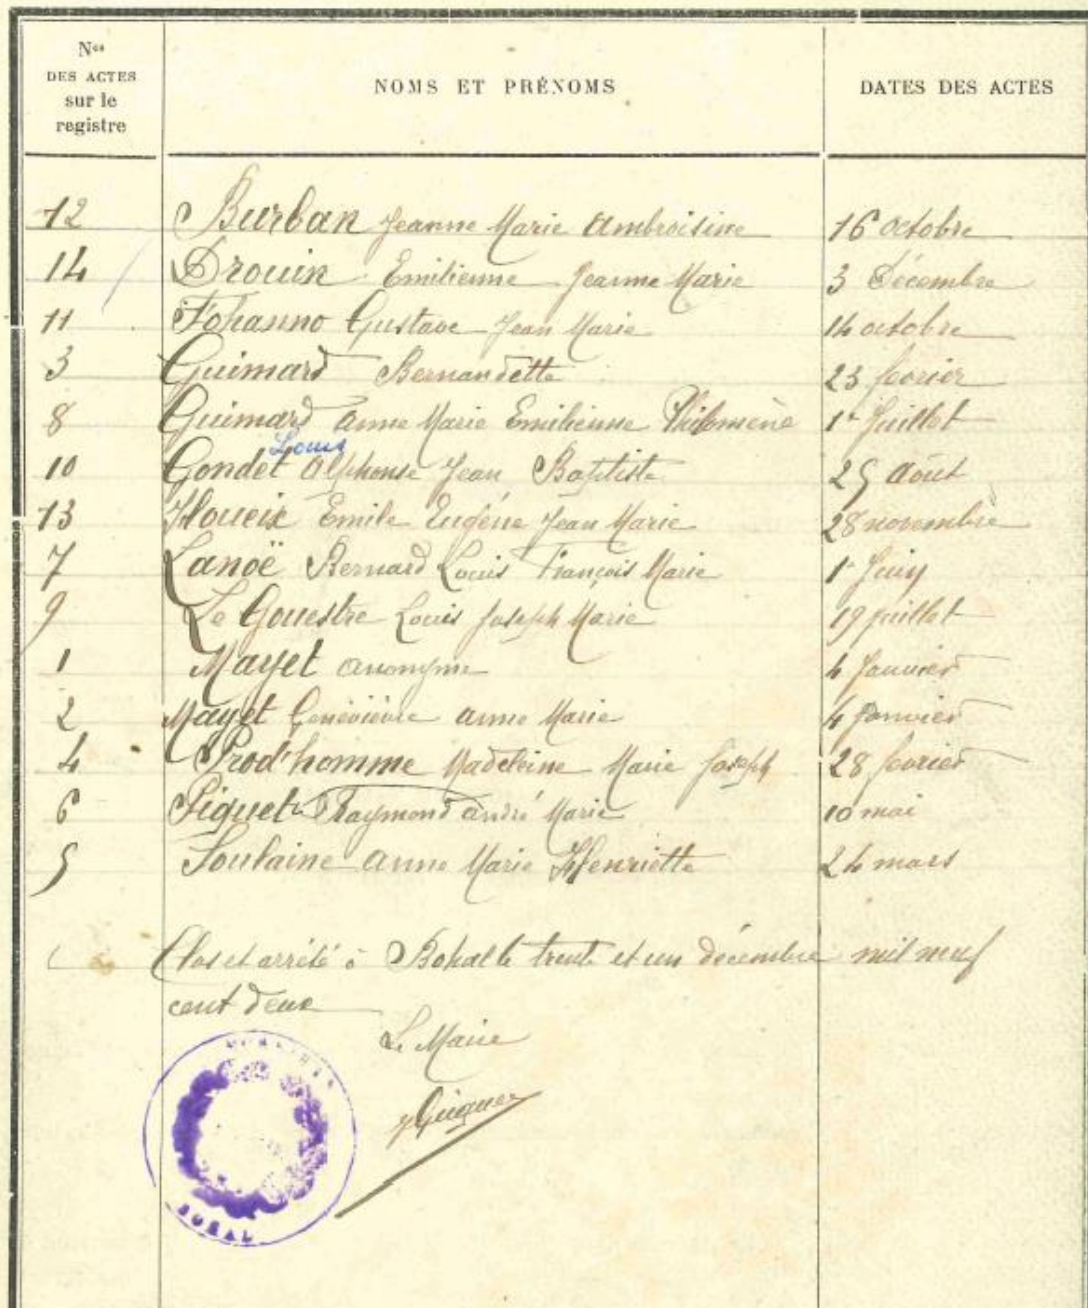 Nos
DES ACTES
sur le
registre
NOMS ET PRÉNOMS
DATES DES ACTES
12 Burban Jeanne Marie Ambroisine 16 octobre
14 Drouin Emilienne Jeanne Marie 3 Décembre
11 Johanno Gustave Jean Marie 14 octobre
3 Guimard Bernardette 23 février
8 Guimard Anne Marie Emilienne Philomène 1r Juillet
Louis
10 Gondet Alphonse Jean Baptiste 25 août
13 Houeix Emile Eugène Jean Marie 28 novembre
7 Lanoë Bernard Louis François Marie 1r Juin
9 Le Gouestre Louis Joseph Marie 19 juillet
1 Mayet anonyme 4 Janvier
2 Mayet Geneviève Anne Marie 4 Janvier
4 Prod'homme Madeleine Marie Joseph 28 février
6 Piquet Raymond André Marie 10 mai
5 Soulaine Anne Marie Henriette 24 mars
Clos et arrêté à Bohal le trente et un décembre mil neuf
cent deux
Le Maire
BOHAL